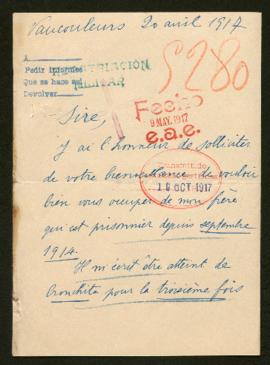 Vaucouleurs 20 avril 1917
A
Pedir informes
Que se hace así
Devolver
MILITAR
5280
Fecho
9 MAY. 1917
e.a.e.
Sire,
J'ai l'honneur de solliciter
de votre bienveillance de vouloir
18 OCT 1917
bien vous occuper de mon frère
qui est prisonnier depuis septembre
1914.
Il m'écrit être atteint de
bronchite pour la troisième fois